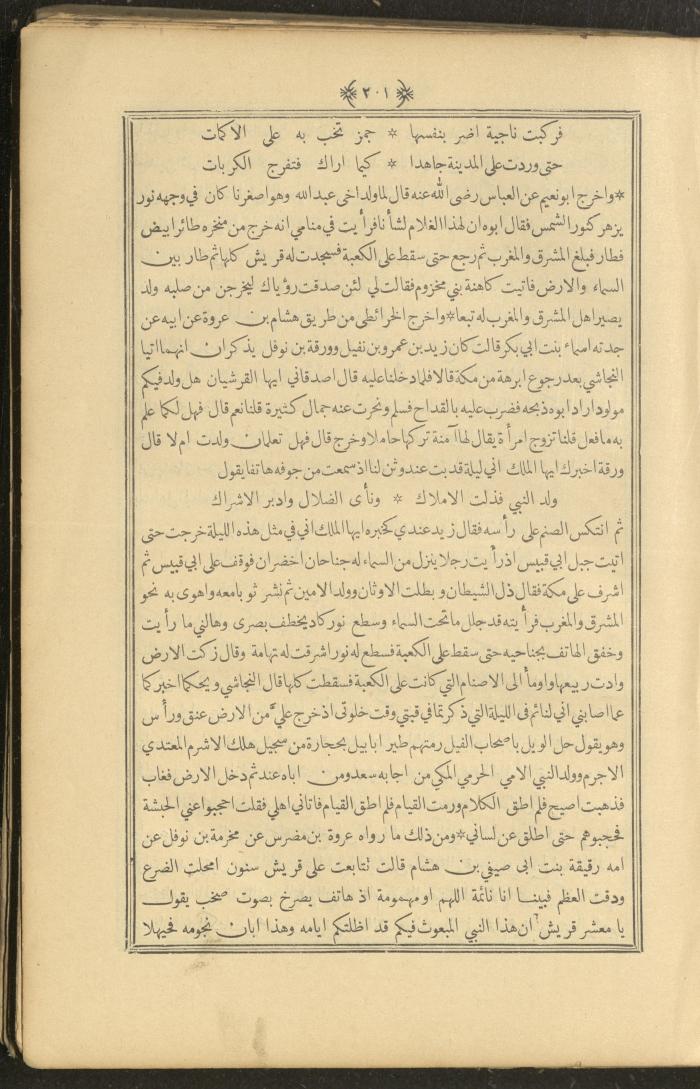 ٢٠١
فركبت ناجية اضر بنفسها * جمز تخب به على الاكمات
حتى وردت على المدينة جاهدا * كيما اراك فتفرج الكربات
*واخرج ابونعيم عن العباس رضى الله عنه قال لما ولد اخى عبدالله وهو اصغرنا كان في وجهه نور
يزهر كنور الشمس فقال ابوه ان لهذا الغلام لشأنا فرأيت في منامي انه خرج من منخره طائر ابيض
فطار فبلغ المشرق والمغرب ثم رجع حتى سقط على الكعبة فسجدت له قريش كلها ثم طار بين
السماء والارض فاتيت كاهنة بني مخزوم فقالت لي لئن صدقت رؤياك ليخرجن من صلبه ولد
يصير اهل المشرق والمغرب له تبعا*واخرج الخرائطي من طريق هشام بن عروة عن ابيه عن
جدته اسماء بنت ابي بكر قالت كان زيد بن عمرو بن نفيل وورقة بن نوفل يذكران انهما اتيا
النجاشي بعد رجوع ابرهة من مكة قالا فلما دخلنا عليه قال اصدقاني ايها القرشيان هل ولد فيكم
مولود اراد ابوه ذبحه فضرب عليه بالقداح فسلم ونحرت عنه جمال كثيرة قلنا نعم قال فهل لكما علم
به ما فعل قلنا تزوج امرأة يقال لها آمنة تركها حاملا وخرج قال فهل تعلمان ولدت ام لا قال
ورقة اخبرك ايها الملك اني ليلة قد بت عند وثن لنا اذ سمعت من جوفه هاتفا يقول
ولد النبي فذلت الاملاك * ونأى الضلال وادبر الاشراك
ثم انتكس الصنم على رأسه فقال زيد عندي كخبره ايها الملك اني في مثل هذه الليلة خرجت حتى
اتيت جبل ابي قبيس اذ رأيت رجلا ينزل من السماء له جناحان اخضران فوقف على ابي قبيس ثم
اشرف على مكة فقال ذل الشيطان وبطلت الاوثان وولد الامين ثم نشر ثوبا معه واهوى به نحو
المشرق والمغرب فرأيته قد جلل ما تحت السماء وسطع نور كاد يخطف بصرى وهالني ما رأيت
وخفق الهاتف بجناحيه حتى سقط على الكعبة فسطع له نور اشرقت له تهامة وقال زكت الارض
وادت ربيعها واومأ الى الاصنام التي كانت على الكعبة فسقطت كلها قال النجاشي ويحكما اخبركما
عما اصابني اني لنائم فى الليلة التي ذكرتما في قبتي وقت خلوتى اذ خرج عليّ من الارض عنق ورأس
وهو يقول حل الويل باصحاب الفيل رمتهم طير ابابيل بحجارة من سجيل هلك الاشرم المعتدي
الاجرم وولد النبي الامي الحرمي المكي من اجابه سعد ومن اباه عند ثم دخل الارض فغاب
فذهبت اصيح فلم اطق الكلام ورمت القيام فلم اطق القيام فاتاني اهلي فقلت احجبوا عني الحبشة
فحجبوهم حتى اطلق عن لساني*ومن ذلك ما رواه عروة بن مضرس عن مخرمة بن نوفل عن
امه رقيقة بنت ابى صيفي بن هشام قالت تتابعت على قريش سنون امحلت الضرع
ودقت العظم فبينا انا نائمة اللهم او مهمومة اذ هاتف يصرخ بصوت صخب يقول
يا معشر قريش ان هذا النبي المبعوث فيكم قد اظلتكم ايامه وهذا ابان نجومه فحيهلا